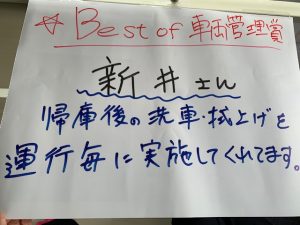 ☆Best of 車両管理賞
新井さん
帰庫後の洗車・拭上げを
運行毎に実施してくれてます。